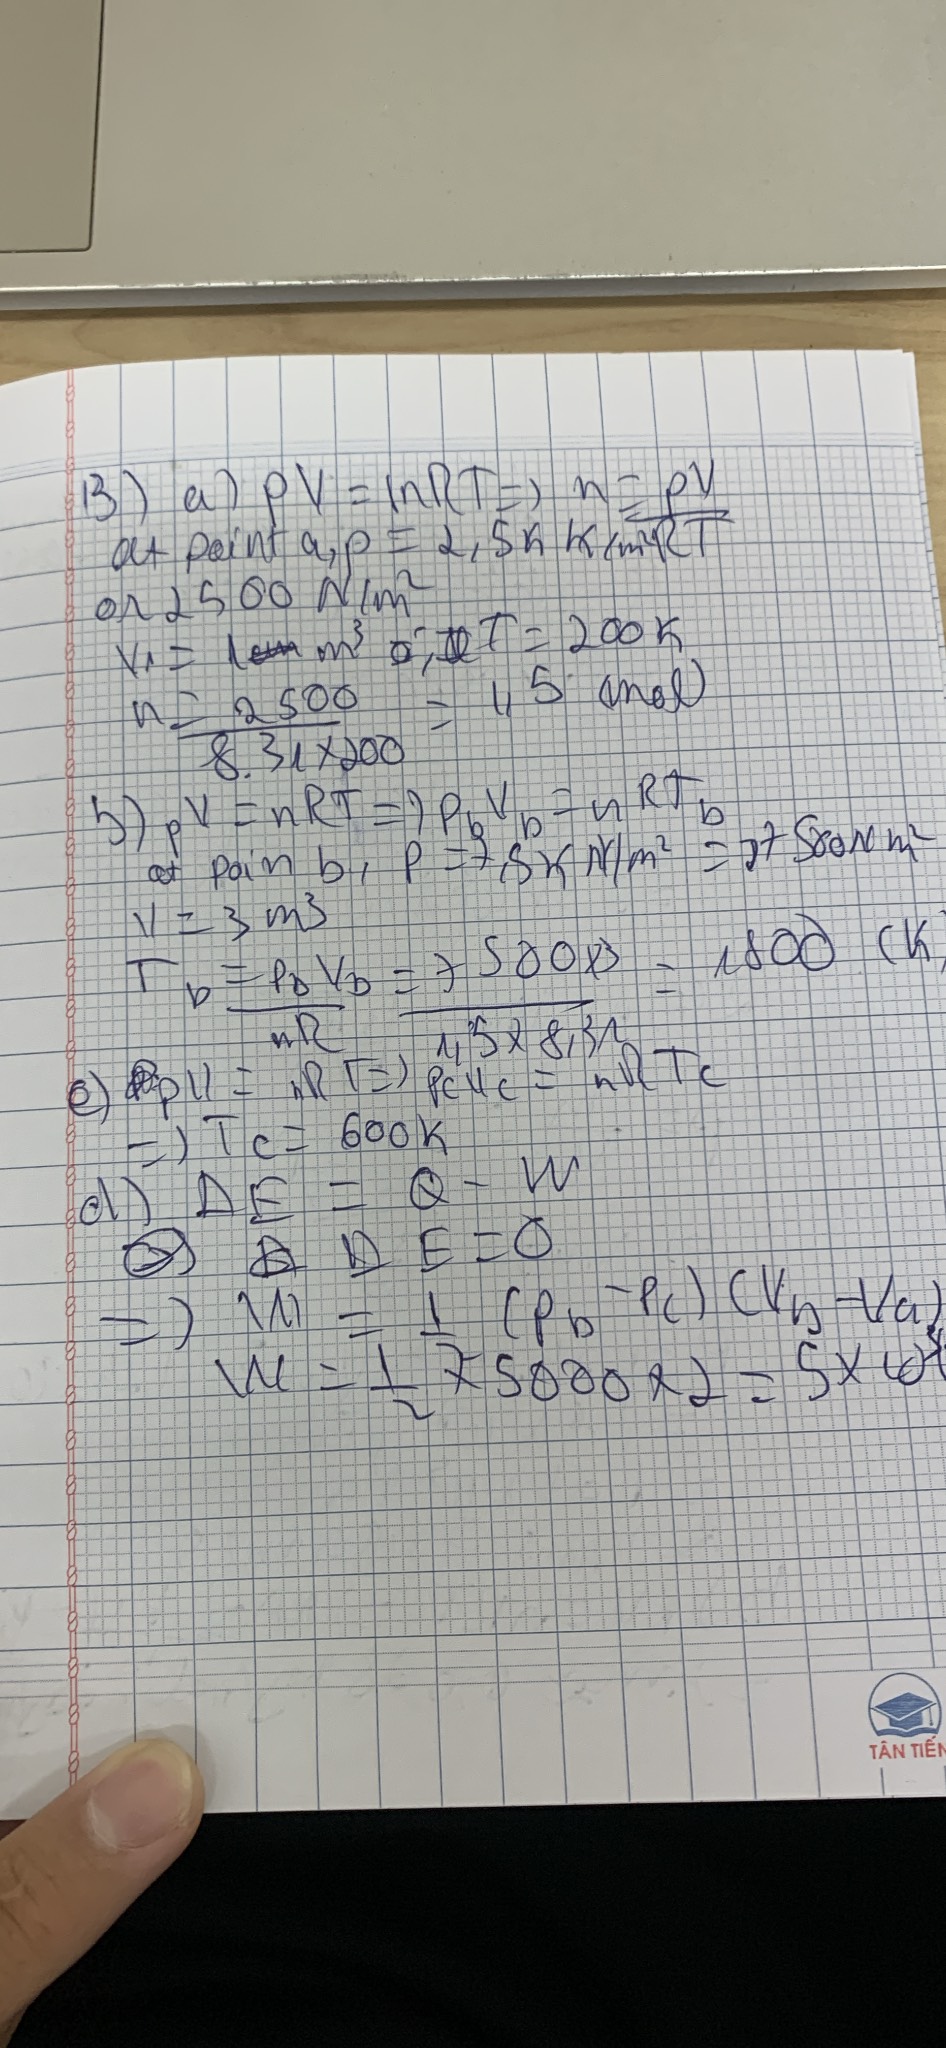 13) a) pV = nRT => n = pV
at point a, p = 2,5k K/m² RT
or 2500 N/m²
V1 = 1 m³ , T = 200K
n = 2500 = 1,5 (mol)
8.31x200
b) pV = nRT => PbVb = nRTb
at poin b, P = 7,5K N/m² = 7500N m²
V = 3 m3
Tb = PbVb = 7500x3 = 1800 (K)
nR 1,5x8,31
c) pV = nRT => PcVc = nRTc
=> Tc = 600K
d) ΔE = Q - W
Δ E = 0
=> W = 1 (Pb - Pc) (Vb - Va)
W = 1 x 5000 x 2 = 5 x 10³
2
TÂN TIẾN